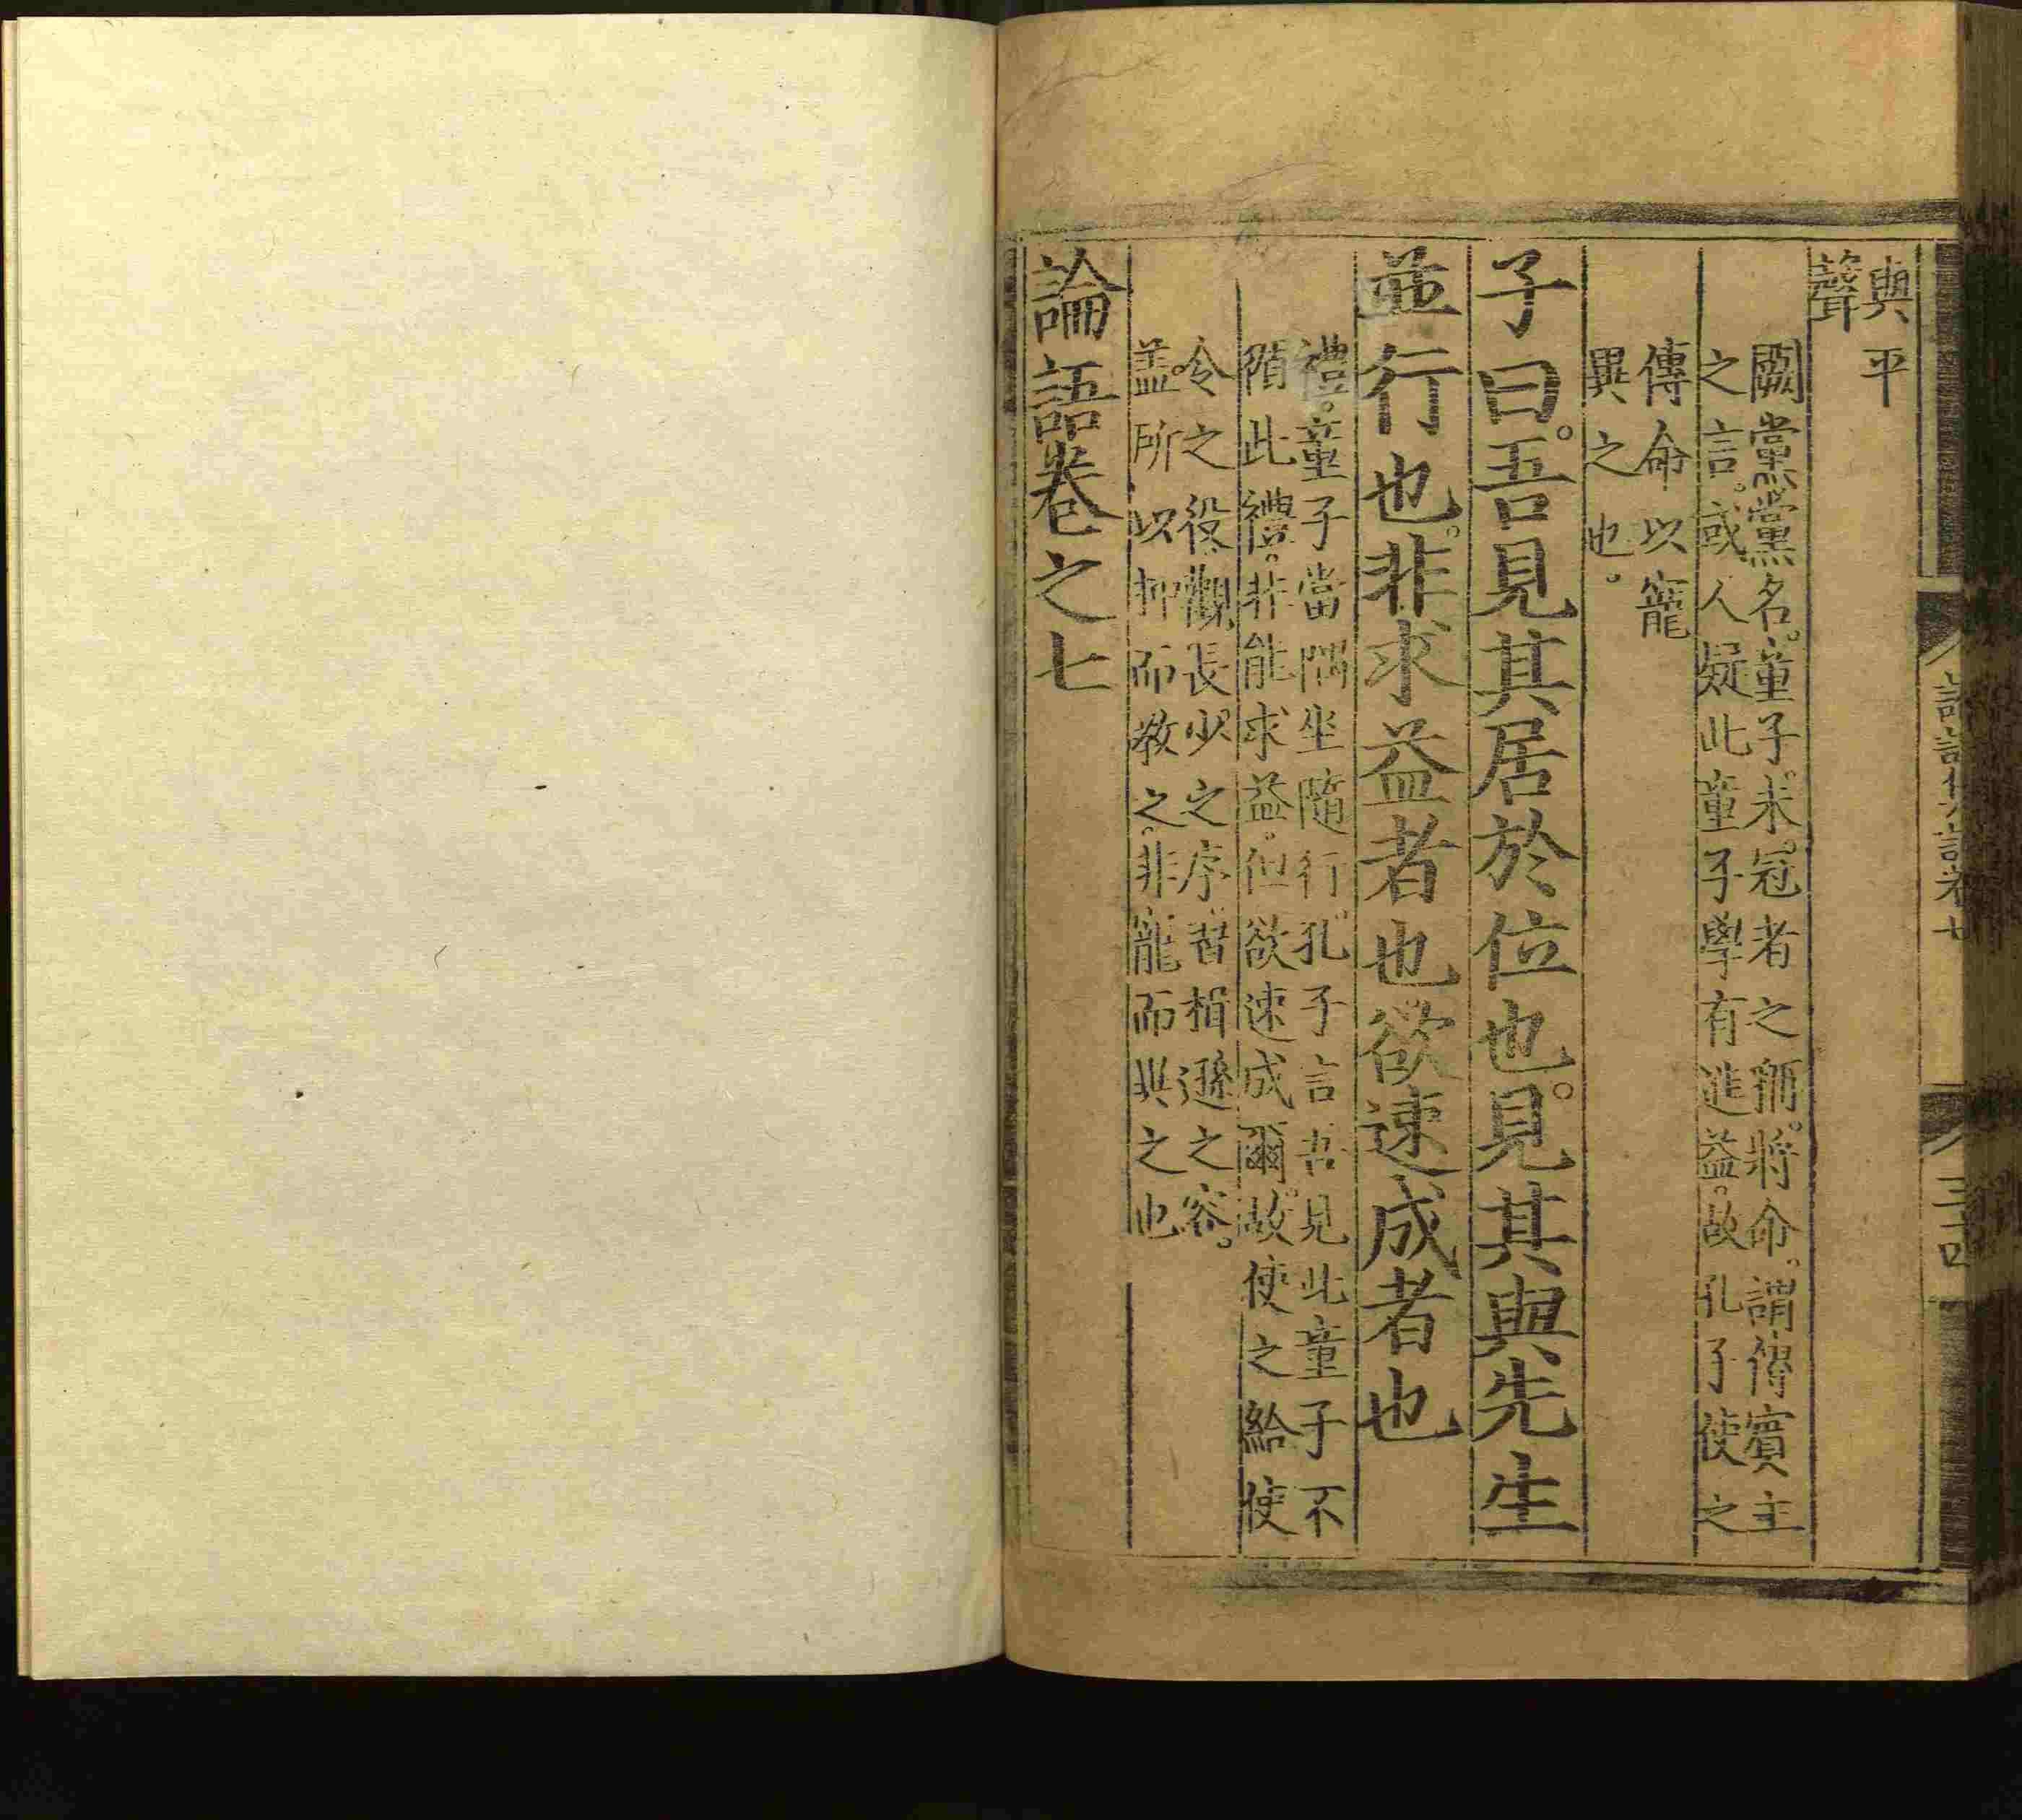 與平
聲
闕黨黨名。童子。未冠者之稱。將命。謂傳賓主
之言。或人疑此童子學有進益。故孔子使之
傳命以寵
異之也。
子曰。吾見其居於位也。見其與先生
並行也。非求益者也欲速成者也
禮。童子當隅坐隨行。孔子言吾見此童子不
循此禮。非能求益。但欲速成爾。故使之給使
令之役。觀長少之序。習揖遜之容。
盖所以抑而教之。非寵而異之也
論語卷之七
三十四